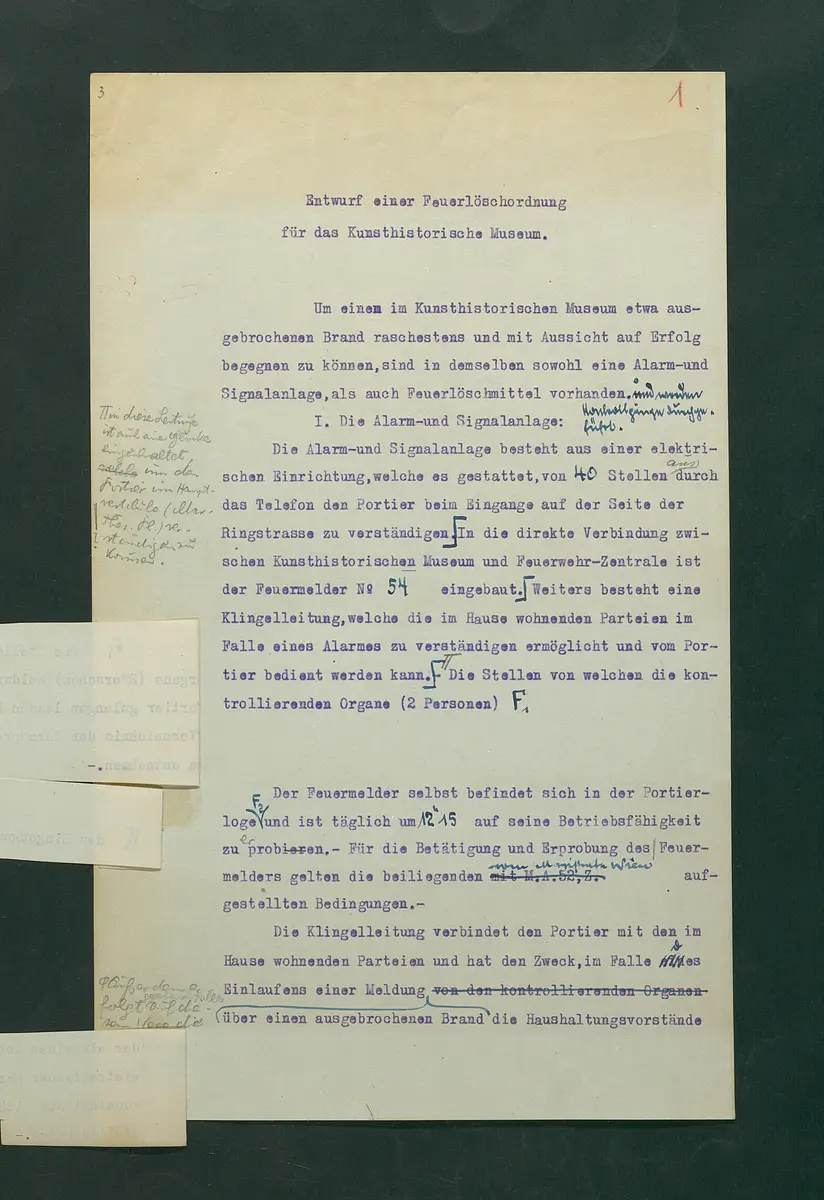 3
1
Entwurf einer Feuerlöschordnung
für das Kunsthistorische Museum.
Um einen im Kunsthistorischen Museum etwa aus-
gebrochenen Brand raschestens und mit Aussicht auf Erfolg
begegnen zu können,sind in demselben sowohl eine Alarm-und
Signalanlage,als auch Feuerlöschmittel vorhanden. und werden
Kontrollgänge durchge-
führt.
I. Die Alarm-und Signalanlage:
Die Alarm-und Signalanlage besteht aus einer elektri-
schen Einrichtung,welche es gestattet,von 40 Stellen aus durch
das Telefon den Portier beim Eingange auf der Seite der
Ringstrasse zu verständigen. In die direkte Verbindung zwi-
schen Kunsthistorischen Museum und Feuerwehr-Zentrale ist
der Feuermelder No 54 eingebaut. Weiters besteht eine
Klingelleitung,welche die im Hause wohnenden Parteien im
Falle eines Alarmes zu verständigen ermöglicht und vom Por-
tier bedient werden kann. Die Stellen von welchen die kon-
trollierenden Organe (2 Personen) F1
Der Feuermelder selbst befindet sich in der Portier-
loge F2 und ist täglich um 12h 15 auf seine Betriebsfähigkeit
zu erprobieren.- Für die Betätigung und Erprobung des Feuer-
melders gelten die beiliegenden mit M.A.52,Z. vom Magistrate Wien auf-
gestellten Bedingungen.-
Die Klingelleitung verbindet den Portier mit den im
Hause wohnenden Parteien und hat den Zweck,im Falle des
Einlaufens einer Meldung von den kontrollierenden Organen
über einen ausgebrochenen Brand die Haushaltungsvorstände
in diese Leitung
ist auch eine Glocke
eingeschaltet,
um den
Portier im Haupt-
vestibule (Mar.
Ther. Pl.) ver-
ständigen zu
können.
Außerdem er-
folgt auf die-
sem Wege die